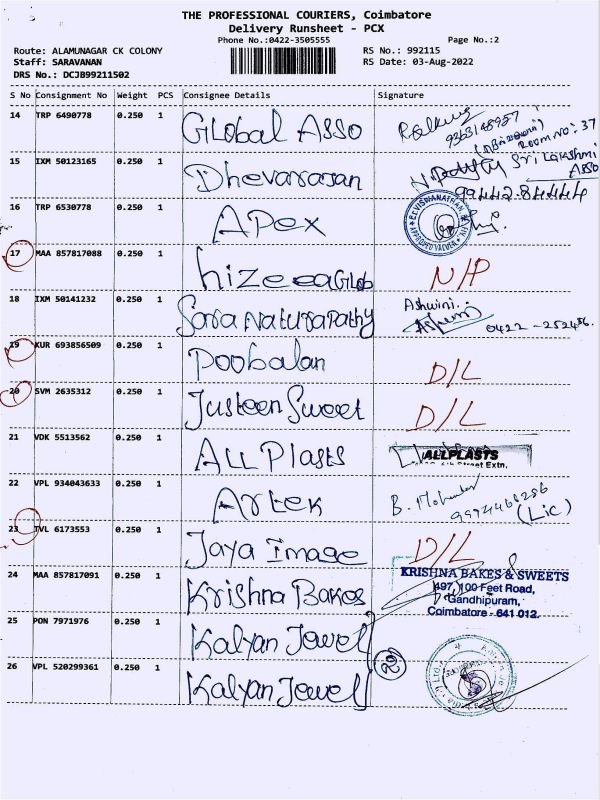 THE PROFESSIONAL COURIERS, Coimbatore
Delivery Runsheet - PCX
Phone No.:0422-3505555
Page No.:2
Route: ALAMUNAGAR CK COLONY
RS No.: 992115
Staff: SARAVANAN
RS Date: 03-Aug-2022
DRS No.: DCJB99211502
S No Consignment No Weight PCS Consignee Details Signature
14 TRP 6490778 0.250 1 Global Asso
9363148957
Room no: 37
15 IXM 50123165 0.250 1 Dhevarasan
Sri Lakshmi
Asso
99442.84444
16 TRP 6530778 0.250 1 Apex
E. VISWANATHAN
APPROVED VALUER
17 MAA 857817088 0.250 1 N/P
18 IXM 50141232 0.250 1 Sara Naturapathy
Ashwini..
0422 - 252456.
19 KUR 693856509 0.250 1 Poobalan D/L
20 SVM 2635312 0.250 1 Justeen Sweet D/L
21 VDK 5513562 0.250 1 ALL Plasts
ALLPLASTS
Street Extn.
22 VPL 934043633 0.250 1 Artek
B.
9994468286
(Lic)
23 TVL 6173553 0.250 1 Jaya Image D/L
24 MAA 857817091 0.250 1 Krishna Bakes
KRISHNA BAKES & SWEETS
497, 100 Feet Road,
Gandhipuram,
Coimbatore - 641 012.
25 PON 7971976 0.250 1 Kalyan Jewel
26 VPL 520299361 0.250 1 Kalyan Jewel